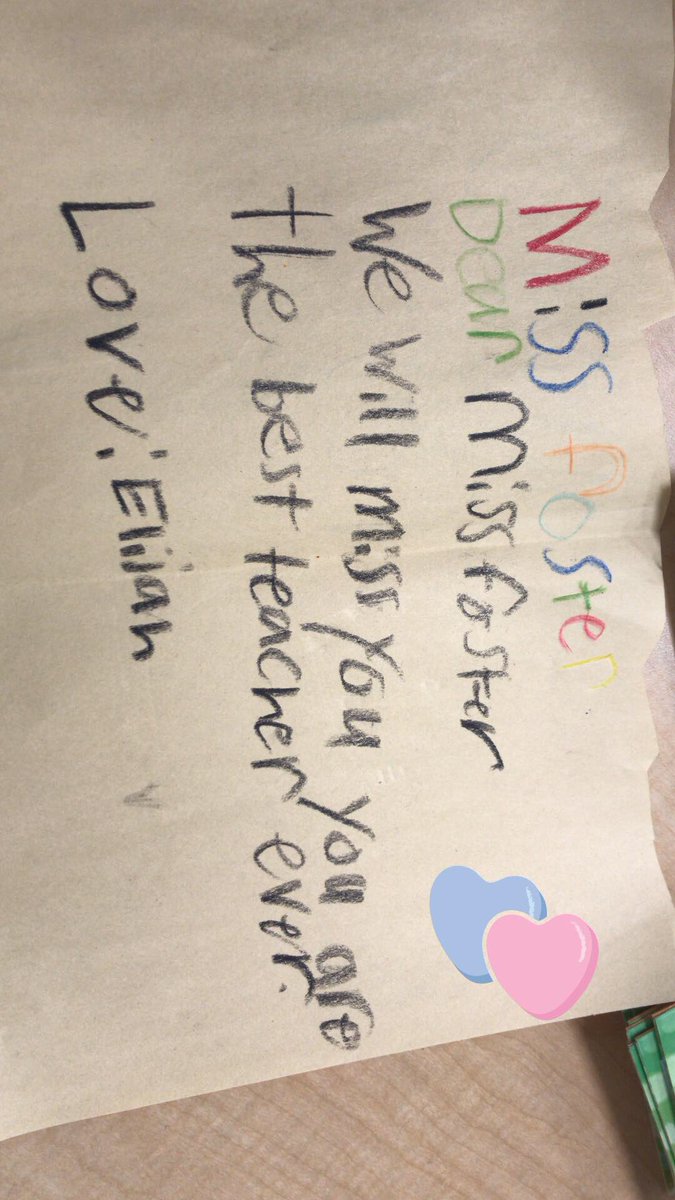 Miss foster
Dear Miss foster
We will miss you you are
the best teacher ever.
Love: Elijah